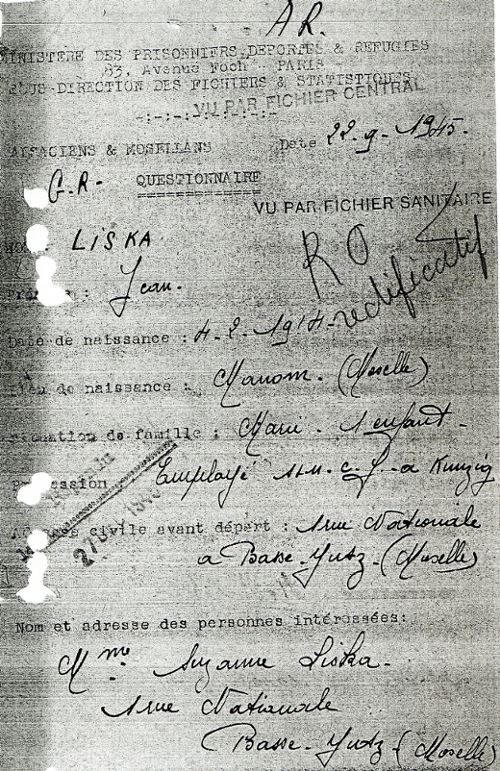 AR.
MINISTERE DES PRISONNIERS, DEPORTES & REFUGIES
83, Avenue Foch - PARIS -
SOUS-DIRECTION DES FICHIERS & STATISTIQUES
VU PAR FICHIER CENTRAL
-:-:-:-:-:-:-:-
ALSACIENS & MOSELLANS Date 22-9-1945.
G.R- QUESTIONNAIRE
VU PAR FICHIER SANITAIRE
LISKA
RO
rectificatif
: Jean.
Date de naissance : 4-2-1914-
Lieu de naissance : Manom. (Moselle)
Situation de famille : Marié - 1 enfant-
Profession Employé à Kunzig
Adresse civile avant départ : 1 rue Nationale
à Basse-Yutz-(Moselle)
Nom et adresse des personnes intéressées:
Mme Suzanne Liska-
1 rue Nationale
Basse-Yutz-(Moselle)